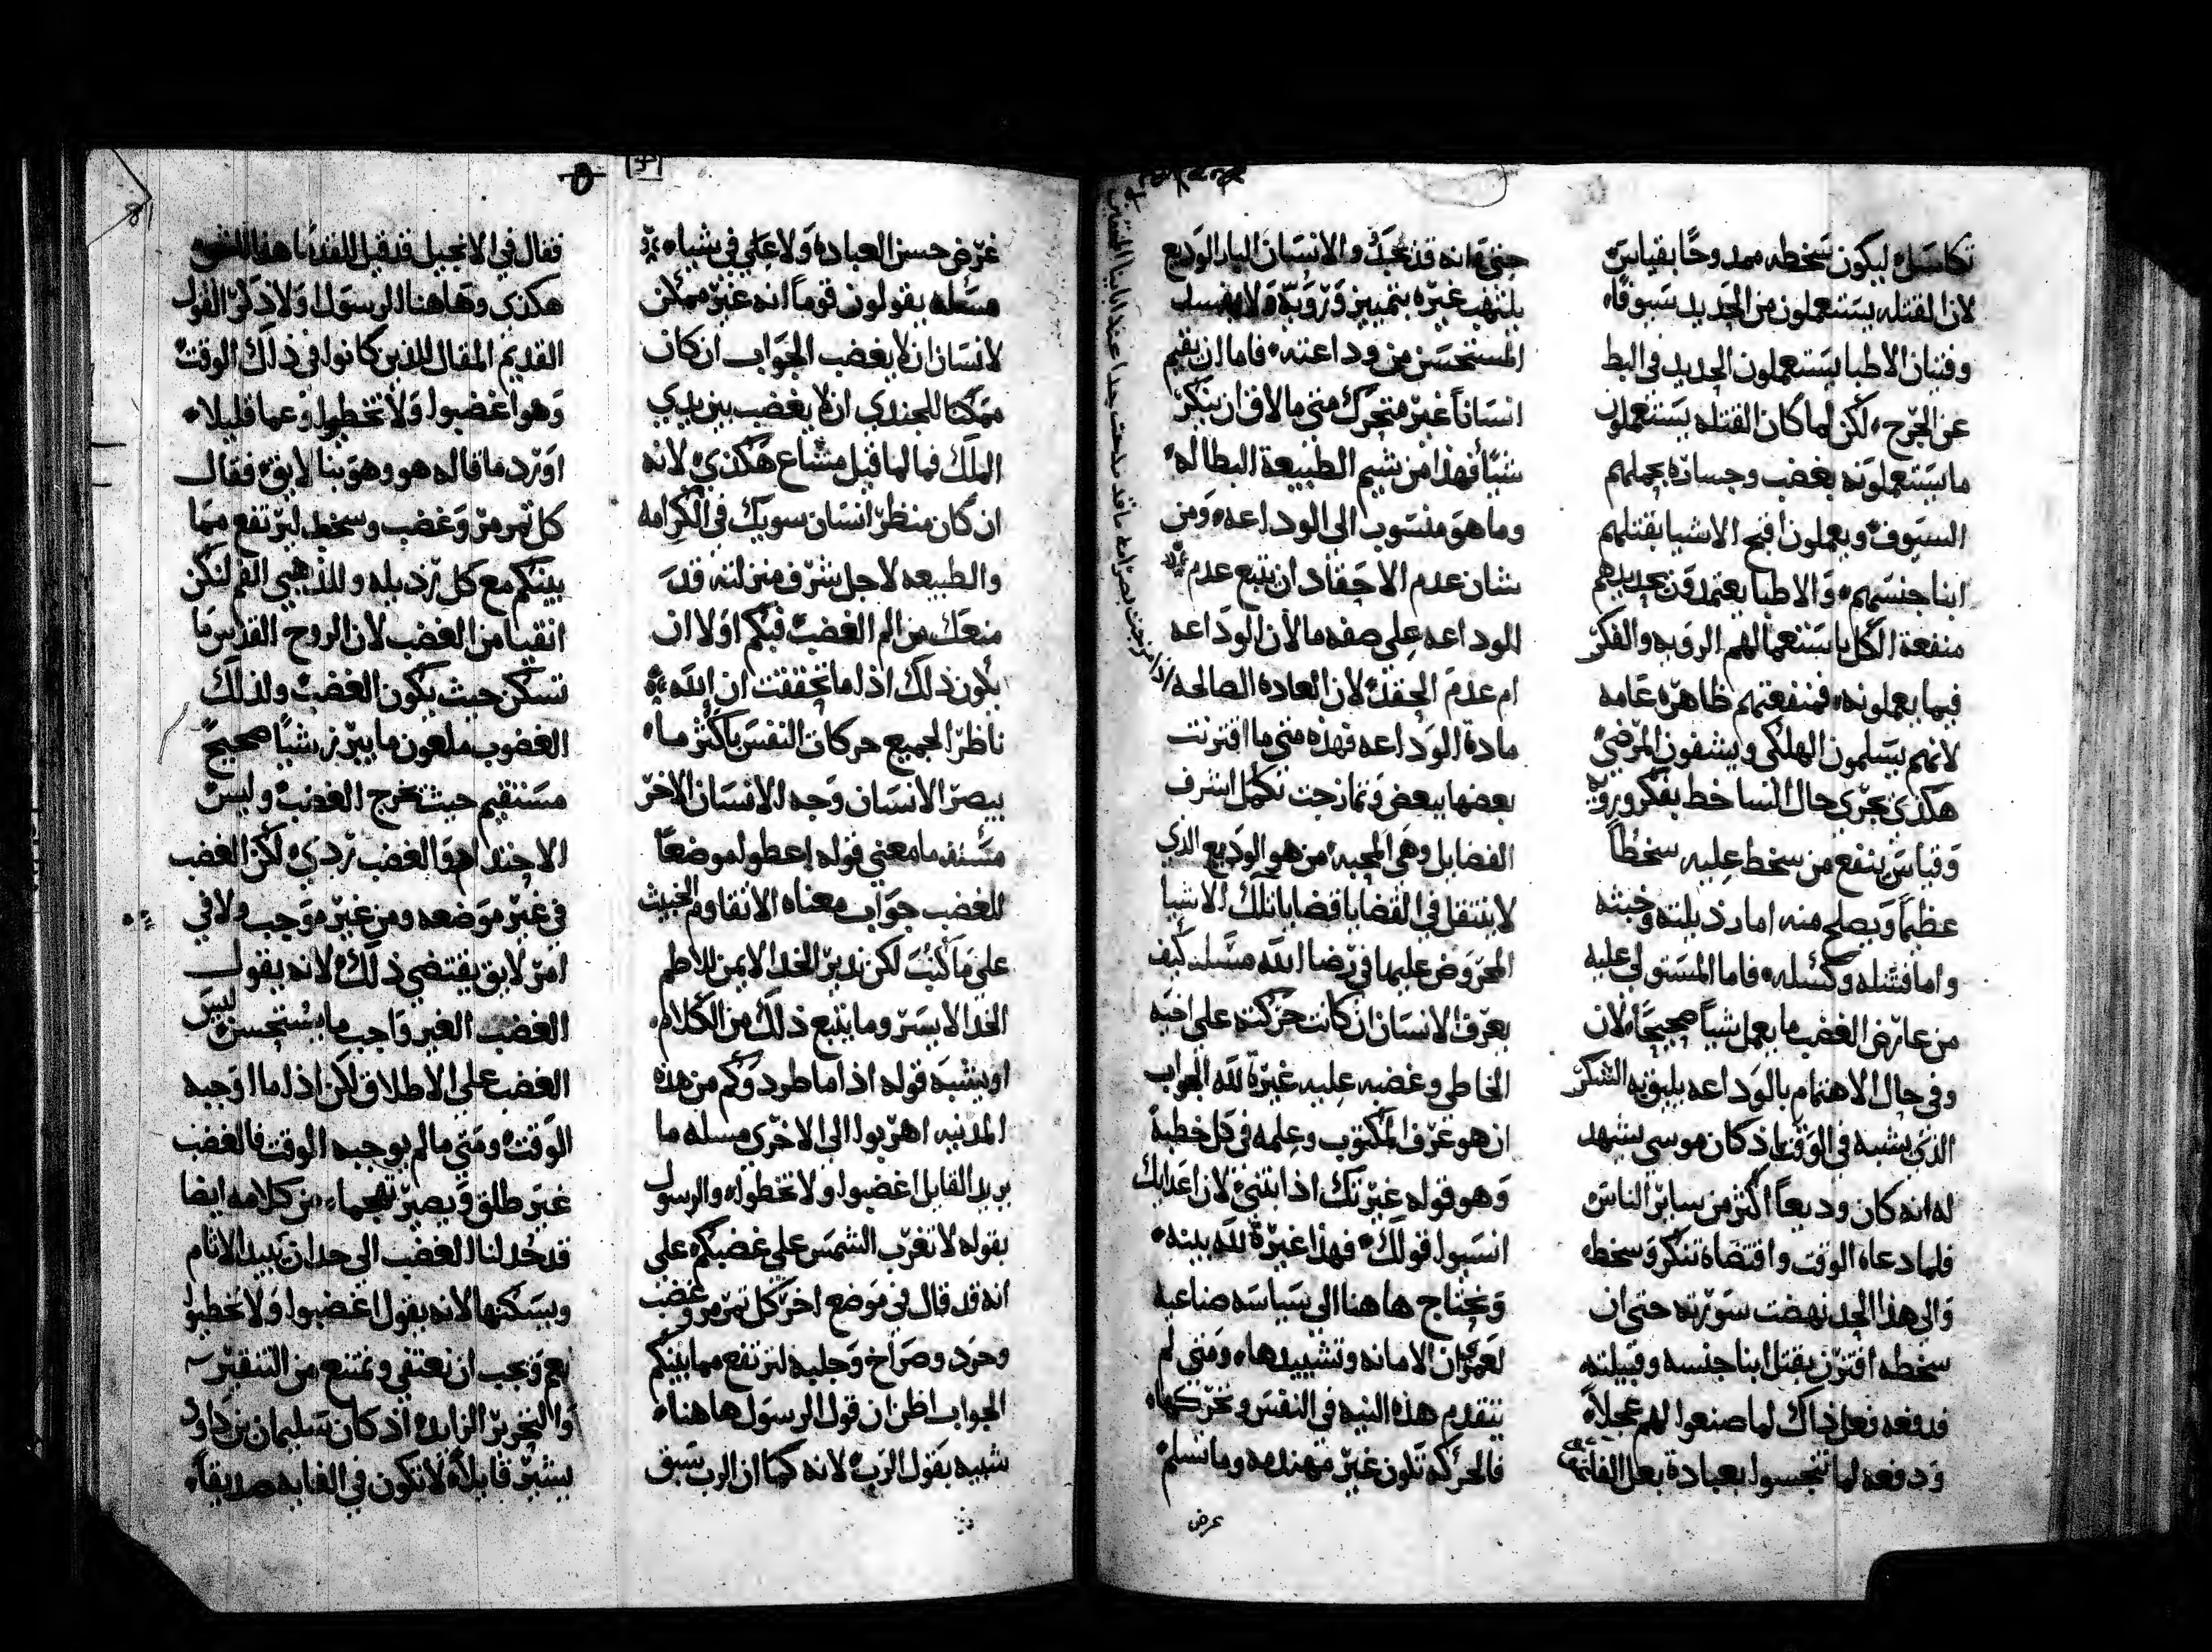 تكاسله ليكون سخطه ممدوحًا بقياس
لان القتله يستعملون من الحديد سيوفًا
وفتيان الاطبا يستعملون الحديد في البط
عن الجرح لكن لما كان القتله يستعملون
ما يستعملونه بغضب وجساره بحملهم
السيوف ويعملون اقبح الاشيا بقتلهم
ابنا جنسهم والاطبا يعتمدون بحديدهم
منفعة الكل باستعمالهم الرويه والفكر
فيما يعملونه فمنفعتهم ظاهره عامه
لانهم يسلمون الهلكي ويشفون المرضي
هكذي تجري حال الساخط بفكر ورويه
وقياس ينفع من سخط عليه سخطًا
عظيمًا ويصلح منه اما رذيلته وخبثه
واما فشله وكسله فاما المستولي عليه
من عارض الغضب ما يعمل شيًا صحيحًا لان
وفي حال الاهتمام بالوداعه يليق به الشكر
الذي يشبه في الوقت اذ كان موسي يشهد
له انه كان وديعًا اكثر من ساير الناس
فلما دعاه الوقت واقتضاه تنكر وسخط
والي هذا الحد نهضت سورته حتي ان
سخطه اقترن بقتل ابنا جنسه وقبيلته
فدفعه فعل ذاك لما صنعوا لهم عجلاً
ودفعه لما تنجسوا بعبادة بعل الفاغور
حتي انه قد نحبك والانسان البار الوديع
يلتهب غيره بتمييز ورويه ولا يفسد
المستحسن من وداعته فاما ان يقيم
انسانًا غير متحرك متي ما لاق ان ينكر
شيًا فهذا من شيم الطبيعة البطاله
وما هو منسوب الي الوداعه ومن
شان عدم الاحقاد ان يتبع عدم
الوداعه علي صفه ما لان الوداعه
ام عدم الحقد لان العاده الصالحه
مادة الوداعه فهذه متي ما اقترنت
بعضها ببعض وتمازجت تكمل اشرف
الفضايل وهي المحبه من هو الوديع الذي
لا ينتقل في القضايا قضايا تلك الاشيا
المحروض عليها في رضا الله مسله كيف
يعرف الانسان ان كانت حركته علي اخيه
الخاطي وغضبه عليه غيرة لله الجواب
ان هو عرف المكتوب وعلمه في كل خطية
وهو قوله غيرتك اذابتني لان اعدايك
انسيوا قولك فهذا غيرة لله بينه
ونحتاج هاهنا الي سياسه صناعيه
لعمري ان الامانه وتشييدها ومتي لم
تتقدم هذه النيه في النفس وتحركها
فالحركه تكون غير مهندمه وما تسلم
عرض
غرض حسن العباده ولا علي في شيا
مسله يقولون قومًا انه غير ممكن
لانسان ان لا يغضب الجواب ان كان
ممكنًا للجندي ان لا يغضب بين يدي
الملك فما لما قيل مشاع هكذي لانه
ان كان منظر انسان سويك في الكرامه
والطبيعه لاجل شرف منزلته قد
منعك من الم الغضب فبكم اولا ان
يكون ذلك اذا ما تحققت ان الله
ناظر الجميع حركات النفس باكثر ما
يبصر الانسان وجه الانسان الاخر
مسله ما معني قوله اعطوا موضعًا
للغضب جواب معناه الا تقاوم الخبيث
علي ما كتب لكن تدير الخد الايمن للاطم
الخد الايسر وما يتبع ذلك من الكلام
او يشبه قوله اذا ما طردوكم من هذه
المدينه اهربوا الي الاخري مسله ما
يريد القايل اغضبوا ولا تخطوا والرسول
يقوله لا تغرب الشمس علي غضبكم علي
انه قد قال في موضع اخر كل تمرمر وغضب
وحرد وصراخ وجلبه لترتفع مما بينكم
الجواب اظن ان قول الرسول هاهنا
شبيه بقول الرب لانه كما ان الرب سبق
فقال في الانجيل قد قيل للقدما هذا
هكذي وهاهنا الرسول اولا ذكر القول
القديم المقال للذين كانوا في ذلك الوقت
وهو اغضبوا ولا تخطوا وعما قليلا
اورد ما قاله هو وهو بنا لايق فقال
كل تمرمر وغضب وسخط ليرتفع مما
بينكم مع كل رذيله وللذهبي الفم لنكن
انقيا من الغضب لان الروح القدس ما
تسكن حيث يكون الغضب ولذلك
الغضوب ملعون ما يبرز شيًا صحيحًا
مستقيم حيث تخرج الغضب وليس
الاحتداد هو الغضب ردي لكن الغضب
في غير موضعه ومن غير موجب ولا في
امر لايق يقتضي ذلك لانه يقول
الغضب الغير واجب ما يستحسن ليس
الغضب علي الاطلاق لكن اذا ما اوجبه
الوقت ومتي ما لم يوجبه الوقت فالغضب
غير طلق ويصير تهجما من كلامه ايضا
قد حُد لنا الغضب الي حد ان يبيد الاثام
ويسكنها لانه يقول اغضبوا ولا تخطيوا
نعم ويجب ان نعتفي ونمتنع من التنقير
والتحرير الزايد اذ كان سليمان بن داود
يشير قايلاً لا تكون في الغايه صديقًا